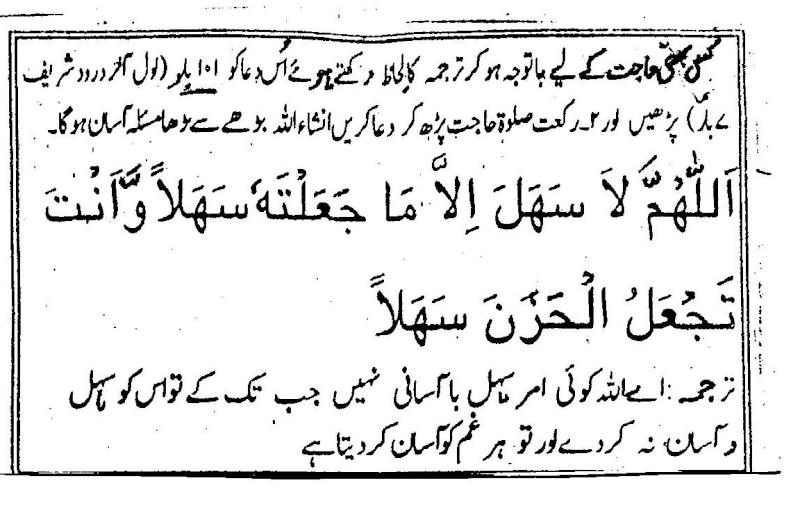 کسی بھی حاجت کے لیے باتوجہ ہو کر ترجمہ کا لحاظ رکھتے ہوئے اُس دعا کو ۱۰۱ بار (اول آخر درود شریف
۷ بار) پڑھیں اور ۲۔رکعت صلوٰۃ حاجت پڑھ کر دعا کریں انشاء اللہ بڑھے سے بڑھا مسئلہ آسان ہوگا۔
اَللّٰهُمَّ لَا سَهَلَ اِلَّا مَا جَعَلْتَهٗ سَهَلاً وَّاَنْتَ
تَجْعَلُ الْحَزَنَ سَهَلاً
ترجمہ : اے اللہ کوئی امر سہل یا آسانی نہیں جب تک کے تو اس کو سہل
و آسان نہ کر دے اور تو ہر غم کو آسان کر دیتا ہے